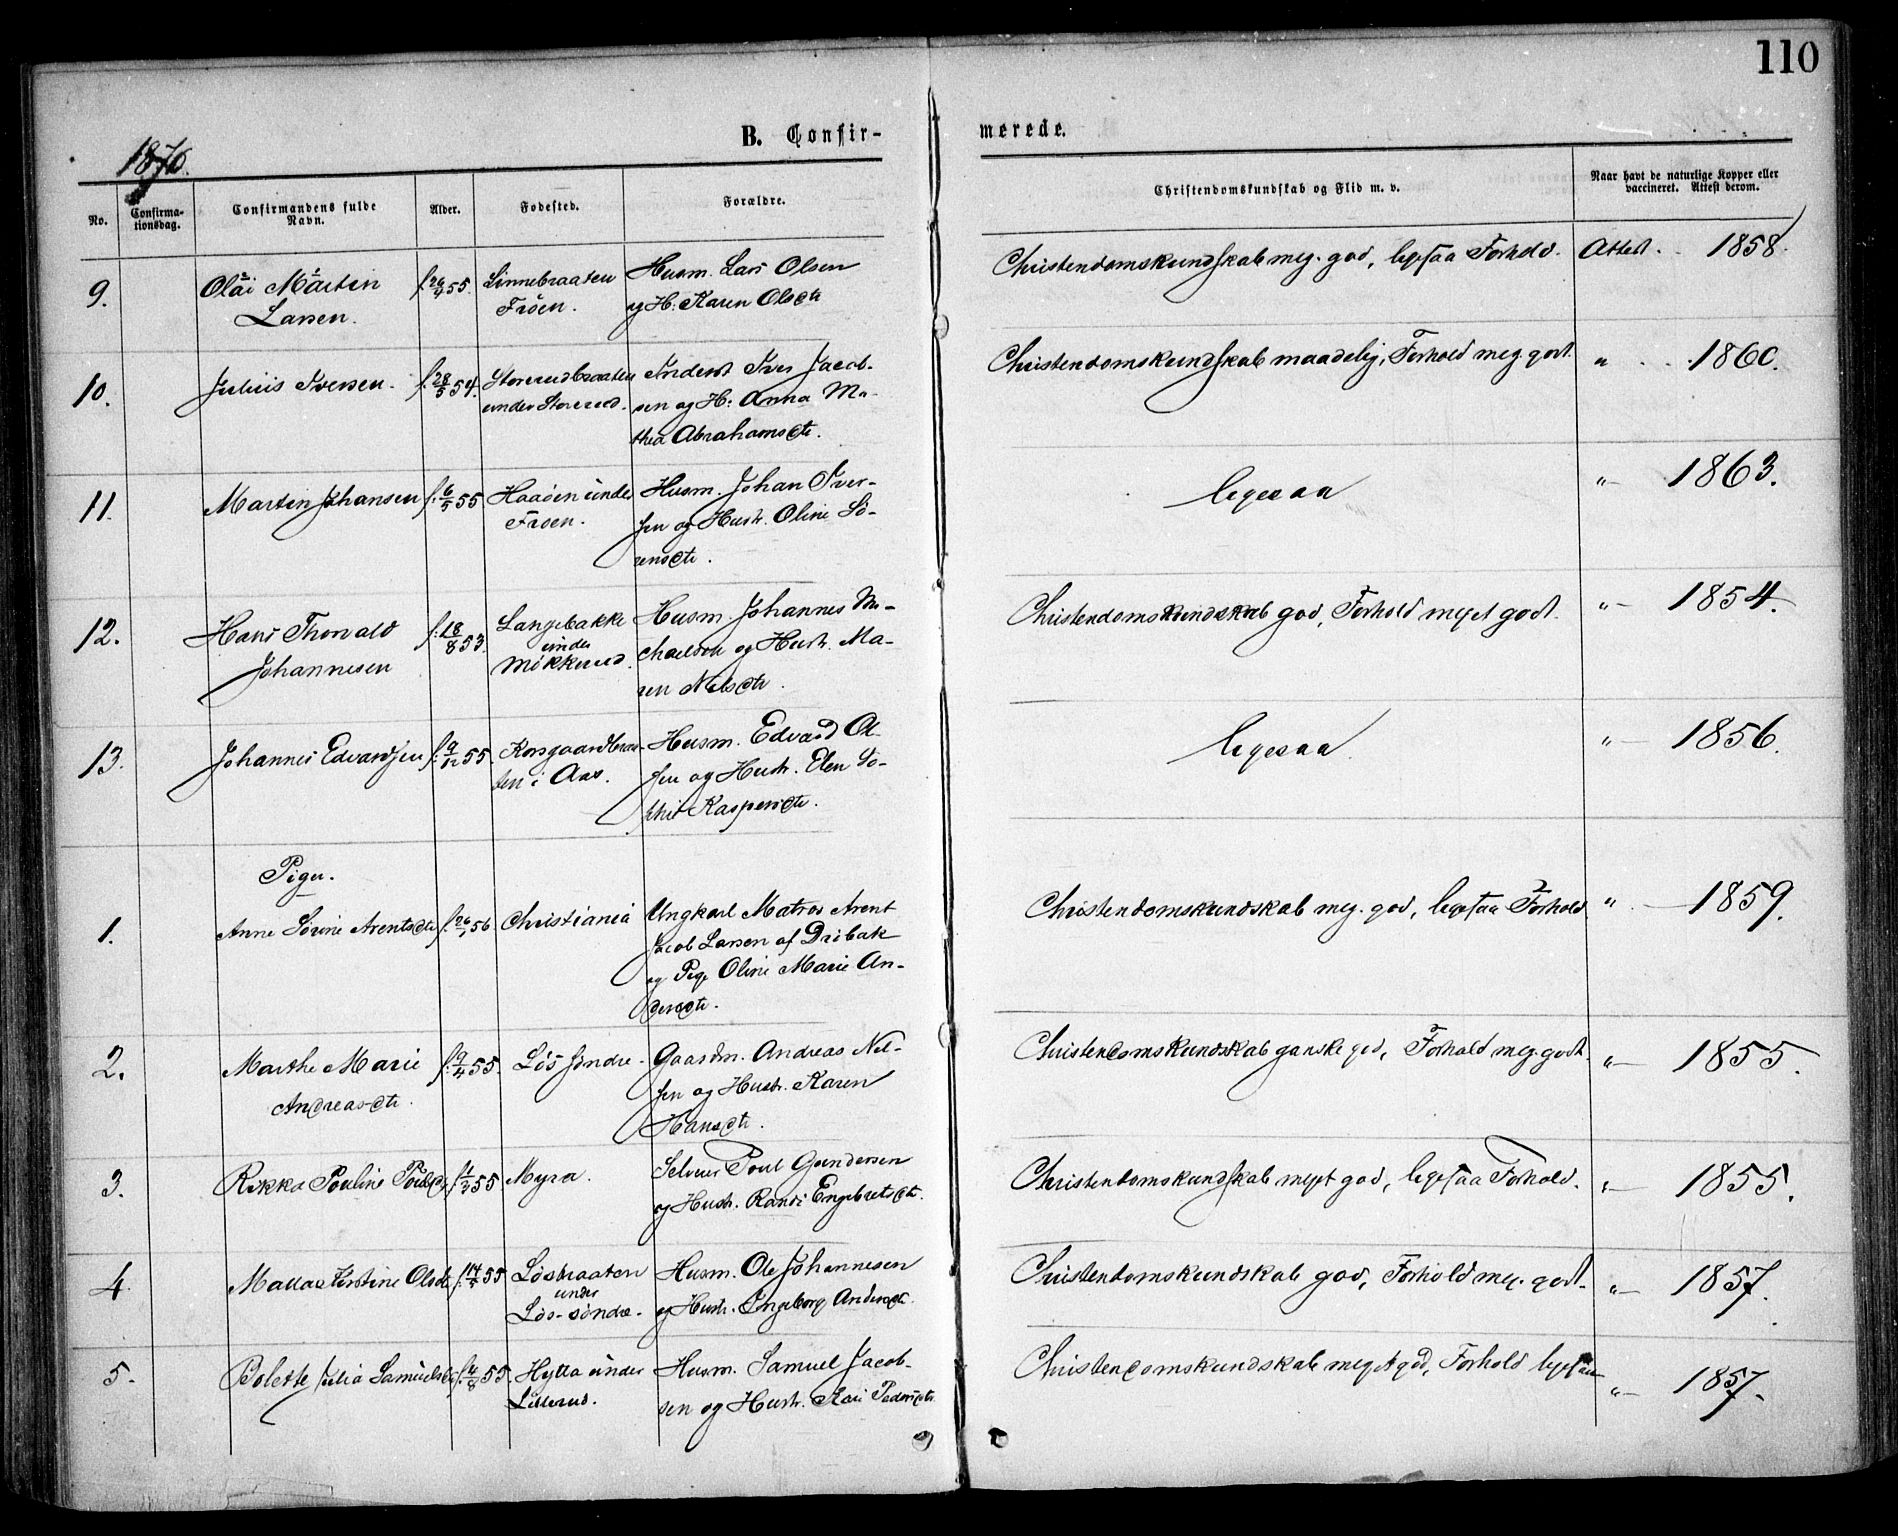 110
B. Confir-
merede.
1870.
No.
Confirma-
tionsdag.
Confirmandens fulde
Navn.
Alder.
Fødested.
Forældre.
Christendomskundskab og Flid m. v.
Naar havt de naturlige Kopper eller
vaccineret. Attest derom.
9. Olai Martin f. 26/4 55. Linnebraaten Husm. Lars Olsen Christendomskundskab meg. god, ligesaa Forhold. Attest. 1858.
Larsen. Frøen. og H: Karen Olsdtr
10. Julius Iversen. f. 28/5 54. Storerudbraaten Inderst Iver Jacob- Christendomskundskab maadelig, Forhold meg. godt. " 1860.
under Storerud. sen og H: Anna Ma-
thea Abrahamsdtr.
11. Martin Johansen f. 6/5 55 Haaøen under Husm. Johan Iver- ligesaa " 1863.
Frøen. sen og Hustr. Oline Sö-
rensdtr.
12. Hans Thorvald f. 18/8 53. Langebakke Husm. Johannes Mi- Christendomskundskab god, Forhold meget godt. " 1854.
Johannesen under chaelsen og Hustr. Ma-
Møkkerud. ren Nilsdtr.
13. Johannes Edvardsen f. 9/12 55. Korsgaardbraa- Husm. Edvard Ol- ligesaa " 1856.
ten i Aas. sen og Hustr. Elen So-
phie Kaspersdtr.
Piger.
1. Anne Sörine Arentsdtr f. 26/1 56. Christiania Ungkarl Matros Arent Christendomskundskab meg. god, ligesaa Forhold " 1859.
Jacob Larsen af Dröbak
og Pige Oline Marie An-
dersdtr.
2. Marthe Marie f. 9/4 55. Løs søndre. Gaardm. Andreas Nil- Christendomskundskab ganske god, Forhold meg. godt. " 1855.
Andreasdtr. sen og Hustr. Karen
Hansdtr.
3. Rikka Pouline Poulsdtr f. 1/3 55 Myra. Selveier Poul Gundersen Christendomskundskab meget god, ligesaa Forhold. " 1855.
og Hustr. Randi Engebretsdtr.
4. Kirstine Olsdtr f. 14/5 55 Løsbraaten Husm. Ole Johannesen Christendomskundskab god, Forhold meg. godt. " 1857.
under og Hustr. Ingeborg Andersdtr.
Løs-søndre.
5. Bolette Julia Samuelsdtr f. 4/8 55. Hytta under Husm. Samuel Jacob- Christendomskundskab meget god, Forhold ligesaa " 1857.
Lillerud. sen og Hustr. Kari Pedersdtr.